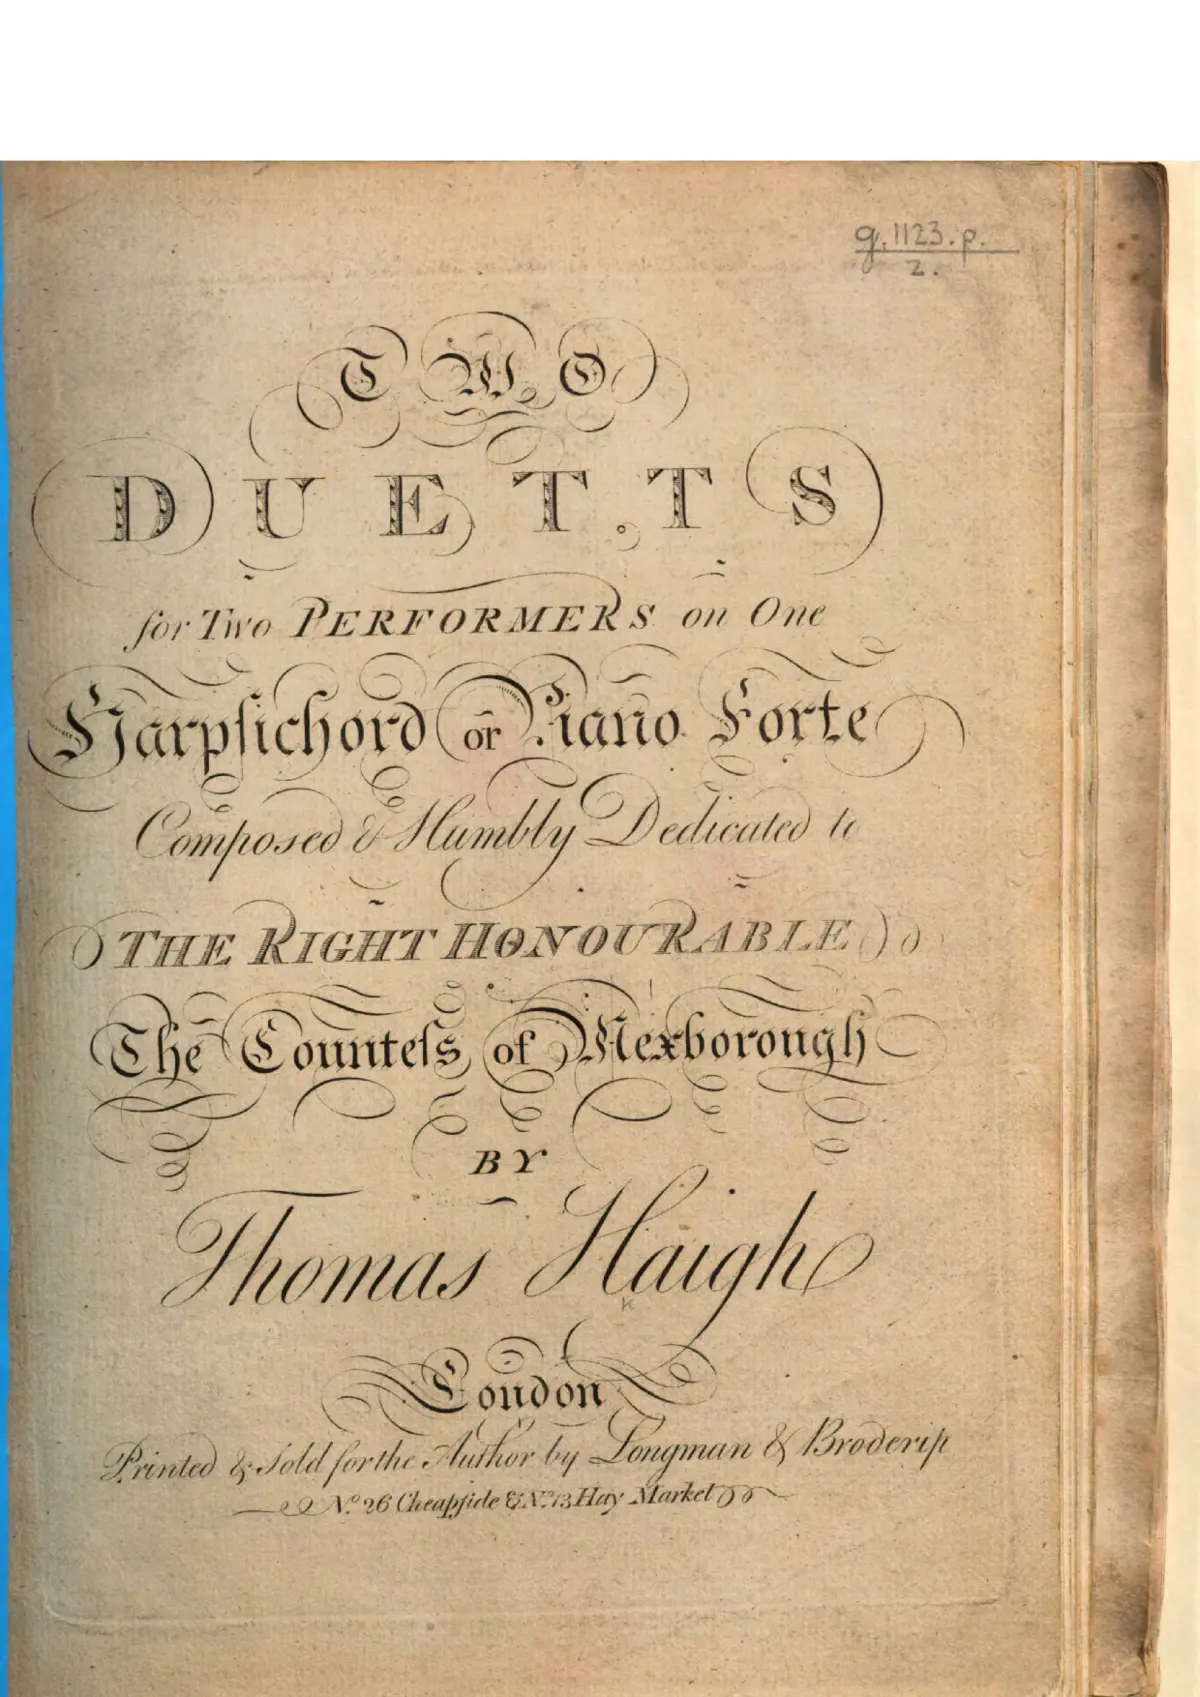 g.1123.p.
2.
TWO
DUETTS
for Two PERFORMERS on One
Harpsichord or Piano Forte
Composed & Humbly Dedicated to
THE RIGHT HONOURABLE
The Counteſs of Mexborough
BY
Thomas Haigh
k
London
Printed & Sold for the Author by Longman & Broderip
No. 26 Cheapſide & No. 13 Hay Market